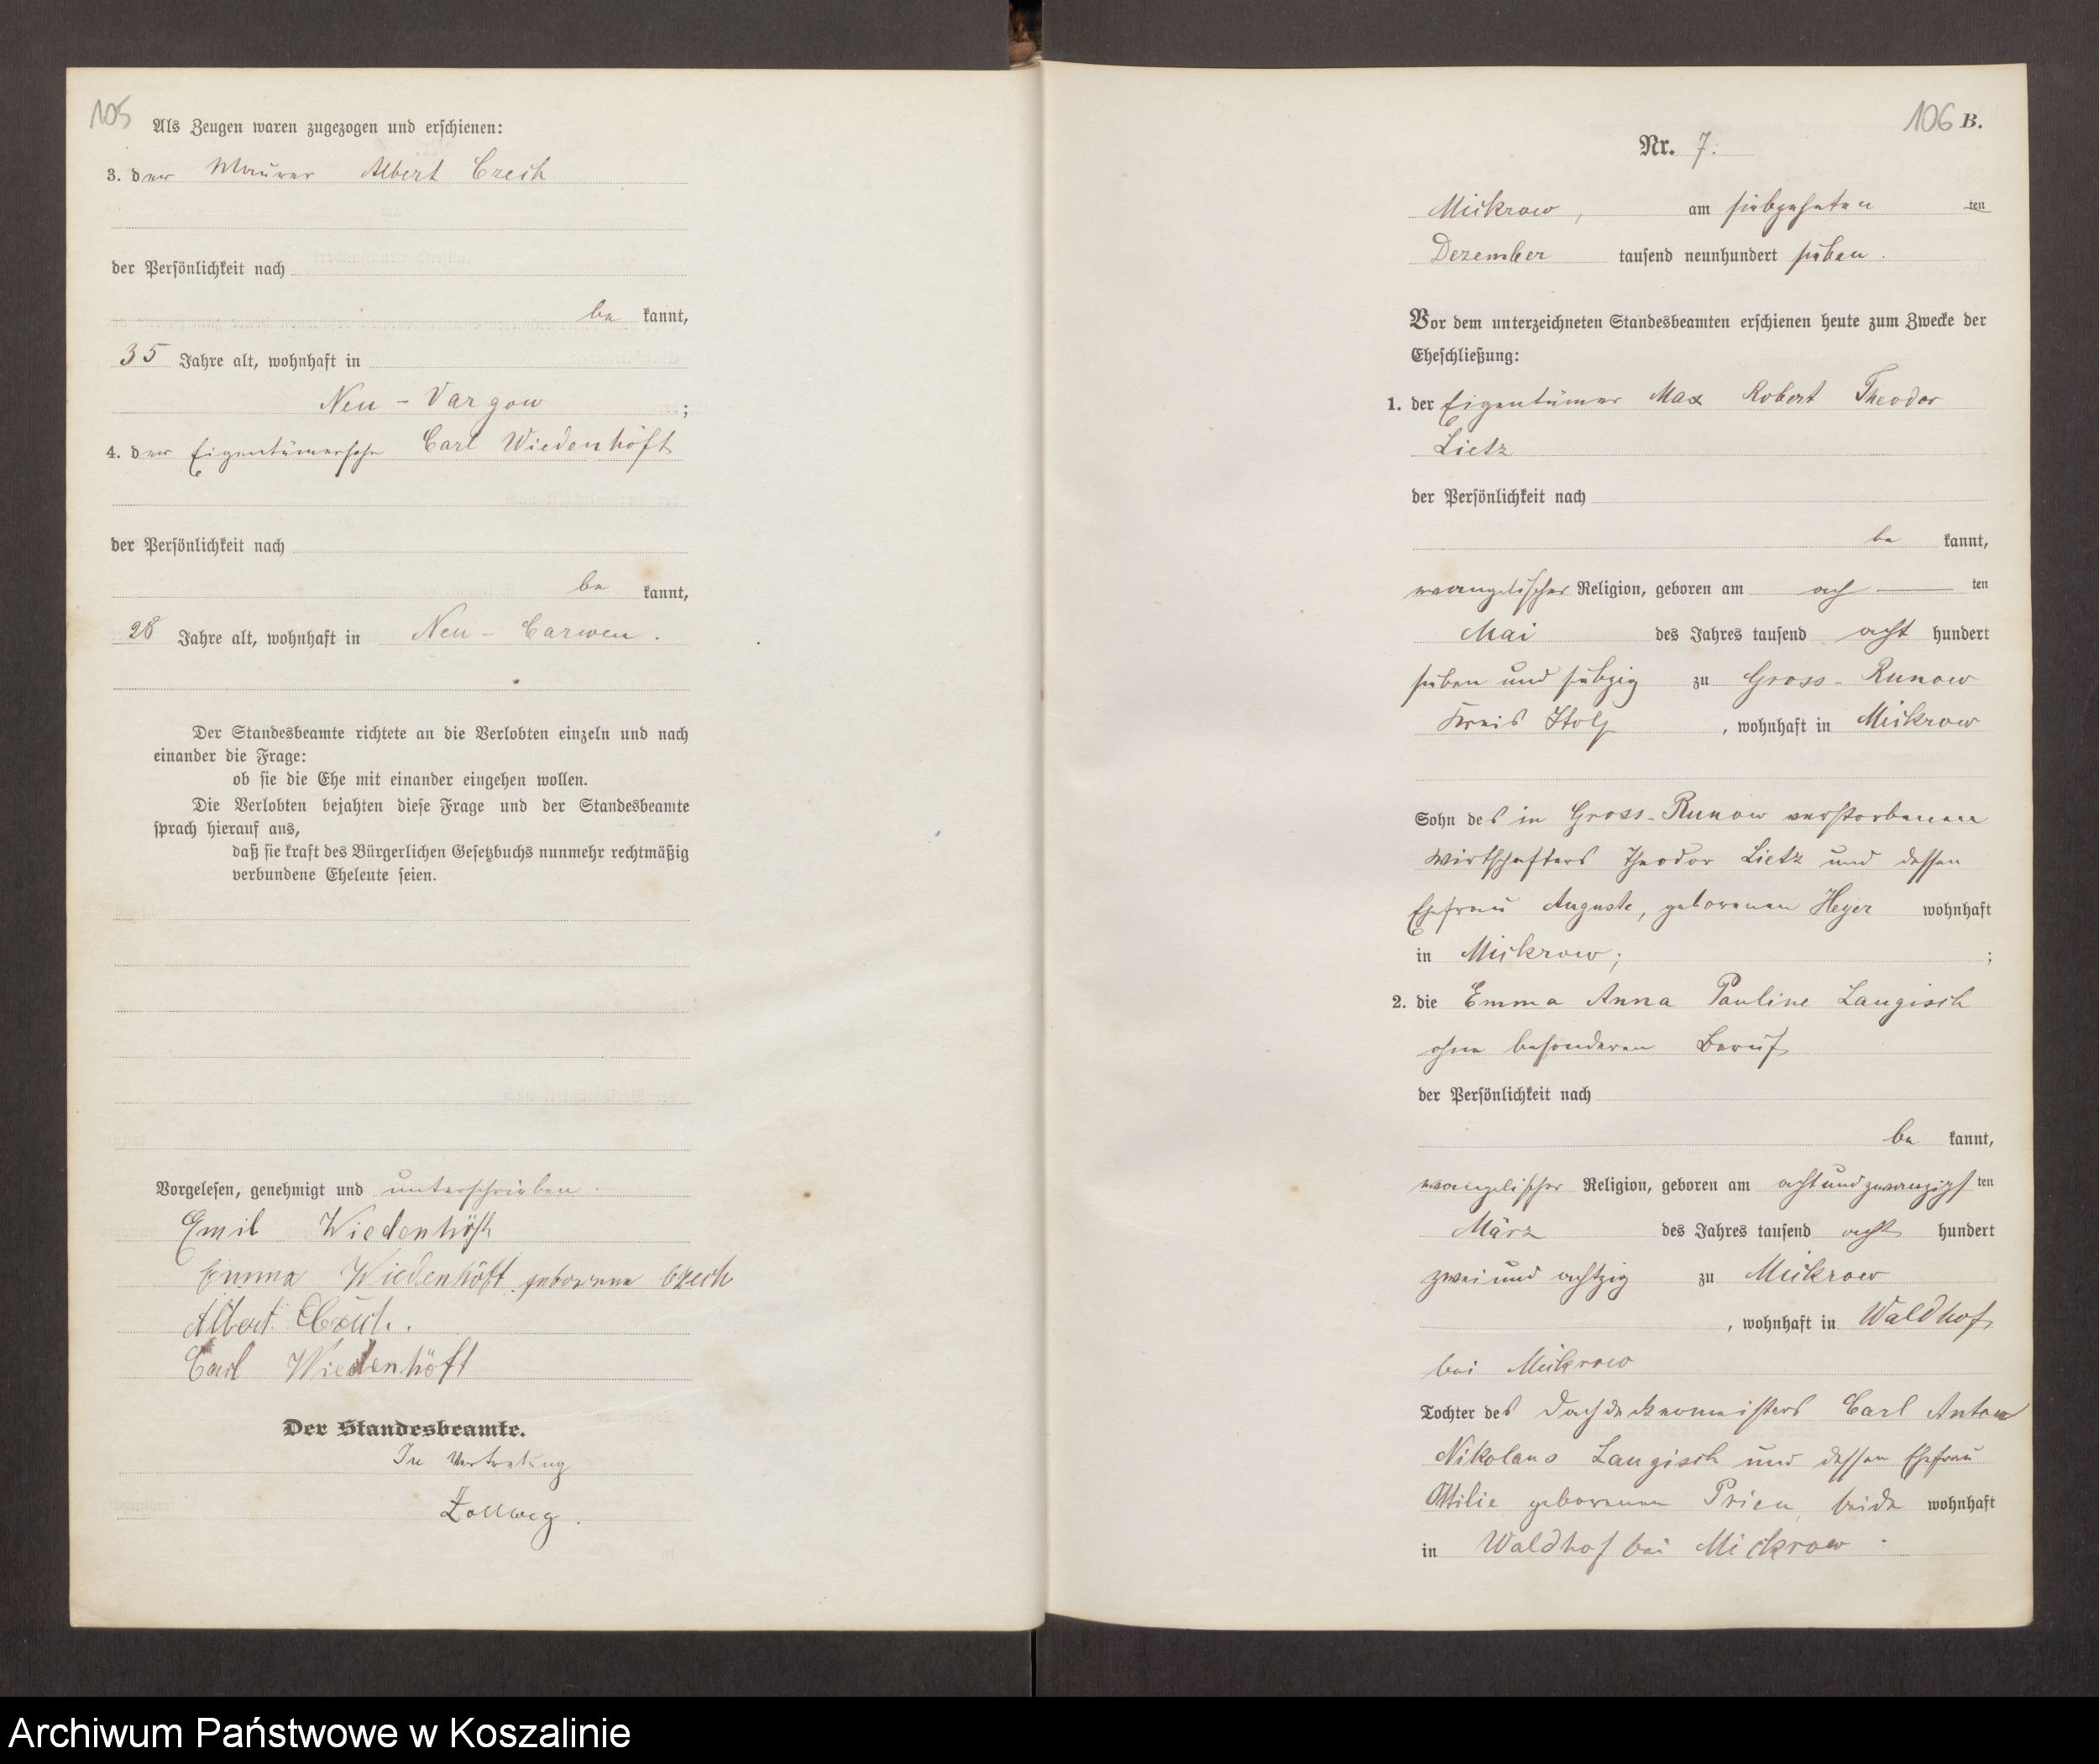 105
Als Zeugen waren zugezogen und erschienen:
3. der Maurer Albert Czech
der Persönlichkeit nach
be kannt,
35 Jahre alt, wohnhaft in
Neu-Vargow ;
4. der Eigentümersohn Carl Wiedenhöft
der Persönlichkeit nach
be kannt,
28 Jahre alt, wohnhaft in Neu-Carwen.
Der Standesbeamte richtete an die Verlobten einzeln und nach
einander die Frage:
ob sie die Ehe mit einander eingehen wollen.
Die Verlobten bejahten diese Frage und der Standesbeamte
sprach hierauf aus,
daß sie kraft des Bürgerlichen Gesetzbuchs nunmehr rechtmäßig
verbundene Eheleute seien.
Vorgelesen, genehmigt und unterschrieben.
Emil Wiedenhöft
Emma Wiedenhöft geborene Czech
Albert Czech.
Carl Wiedenhöft
Der Standesbeamte.
In Vertretung
Zollweg.
106 B.
Nr. 7.
Mickrow, am siebzehnten ten
Dezember tausend neunhundert sieben.
Vor dem unterzeichneten Standesbeamten erschienen heute zum Zwecke der
Eheschließung:
1. der Eigentümer Max Robert Theodor
Lietz
der Persönlichkeit nach
be kannt,
evangelischer Religion, geboren am ach ten
Mai des Jahres tausend acht hundert
sieben und siebzig zu Gross-Runow
Kreis Stolp, wohnhaft in Mickrow
Sohn des in Gross-Runow verstorbenen
Wirtschafters Theodor Lietz und dessen
Ehefrau Auguste, geborenen Heyer wohnhaft
in Mickrow; ;
2. die Emma Anna Pauline Laugisch
ohne besonderen Beruf
der Persönlichkeit nach
be kannt,
evangelischer Religion, geboren am achtundzwanzigs ten
März des Jahres tausend acht hundert
zwei und achtzig zu Mickrow
, wohnhaft in Waldhof
bei Mickrow
Tochter des Dachdeckermeisters Carl Anton
Nikolaus Laugisch und dessen Ehefrau
Ottilie geborenen Prien, beide wohnhaft
in Waldhof bei Mickrow.
Archiwum Państwowe w Koszalinie